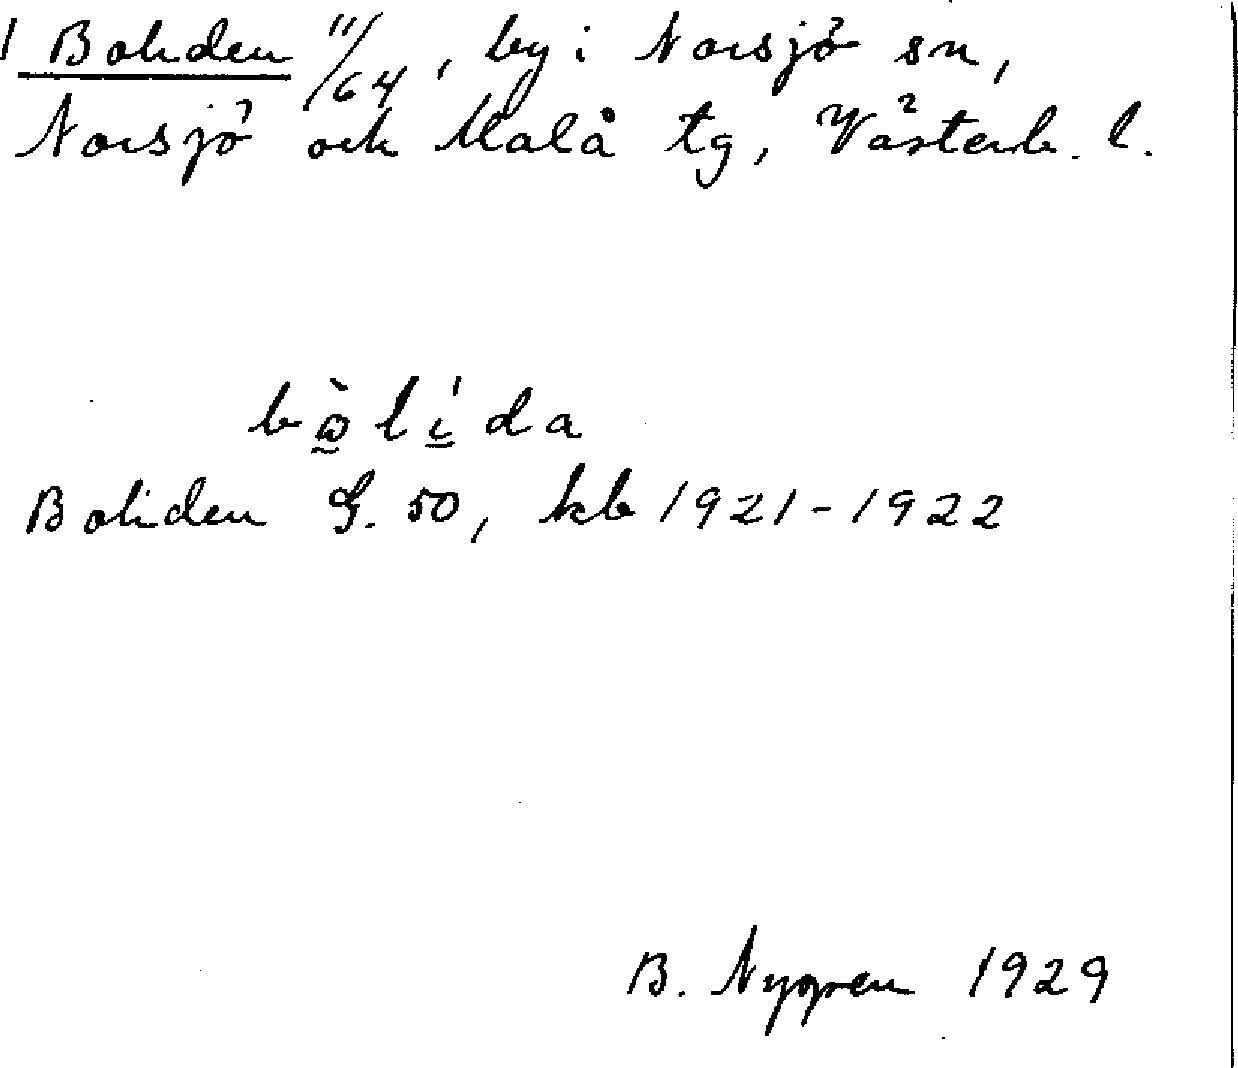 1 Boliden 11/64, by i Norsjö sn,
Norsjö och Malå tg, Västerb. l.
Boliden G. 50, kb 1921-1922
B. Nygren 1929